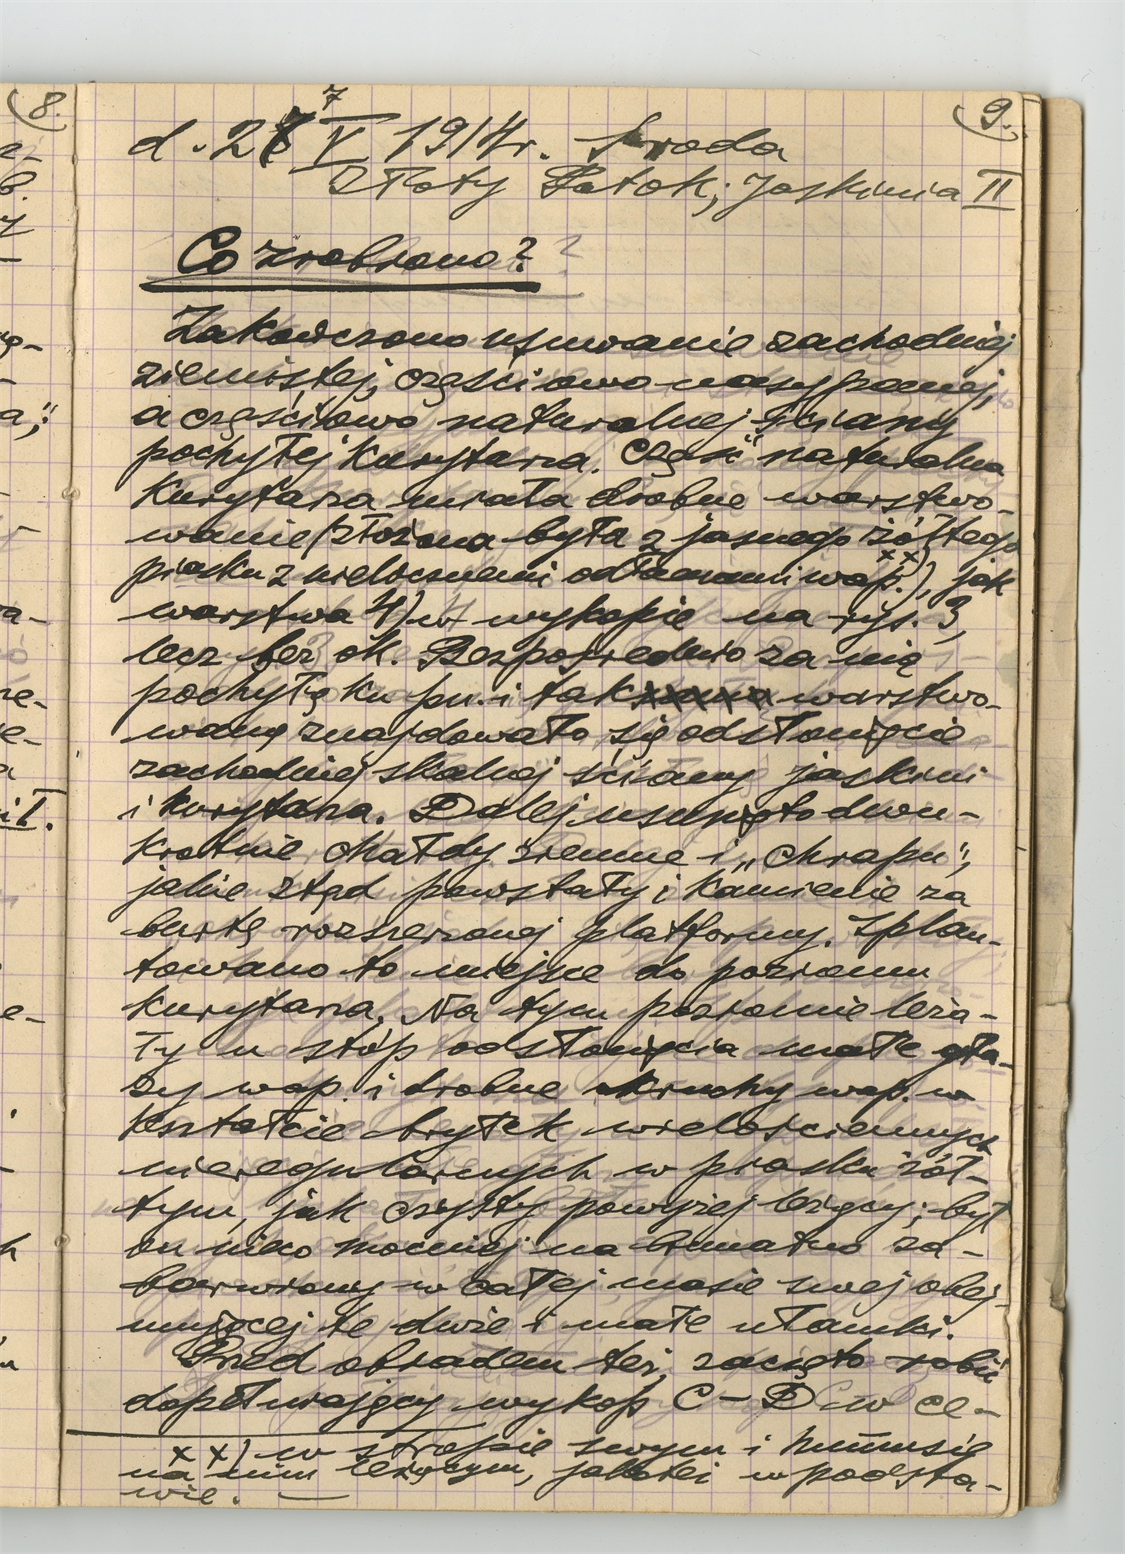 8.
9.
d. 27 V 1914r. Środa
Złoty Potok; Jaskinia II
Co zrobiono?
Zakończono usuwanie zachodniej
ziemistej, częściowo nasypanej,
a częściowo naturalnej ściany
pochyłej kurytarza. Część naturalna
kurytarza miała drobne warstwo-
wanie (złożona była z jasnego żółtego
piasku z nielicznemi odłamami wap. xx), jak
warstwa 4) w wykopie na rys. 3,
lecz bez ok. Bezpośrednio za nią
pochyłą ku pn. i tak warstwo-
waną znajdowało się odsłonięcie
zachodniej skalnej ściany jaskini
i kurytarza. Dalej usunięto dwu-
krotnie hałdy ziemne i „chrapu",
jakie stąd powstały i kamienie za
burtę rozszerzonej platformy. Splan-
towano to miejsce do poziomu
kurytarza. Na tym poziomie leża-
ły u stóp odsłonięcia małe gła-
zy wap. i drobne okruchy wap. w
kształcie bryłek wielościennych
nieregularnych w piasku żół-
tym, jak czysty powyżej leżący; był
on nieco mocniej na brunatno za-
barwiony w całej masie swej obej-
mującej te duże i małe ułamki.
Przed obiadem też zaczęto robić
dopełniający wykop C – D w ce-
xx) w stropie swym i humusie
na nim leżącym, jakoteż w podsta-
wie. —